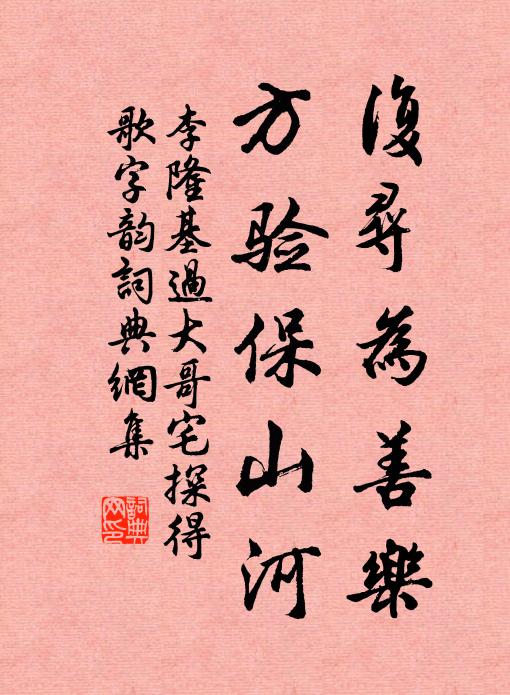 復尋為善樂
方验保山河
李隆基過大哥宅探得
歌字韵詞典網集
詞典
网印